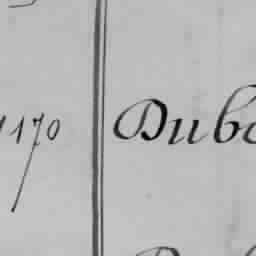 1170 Dub